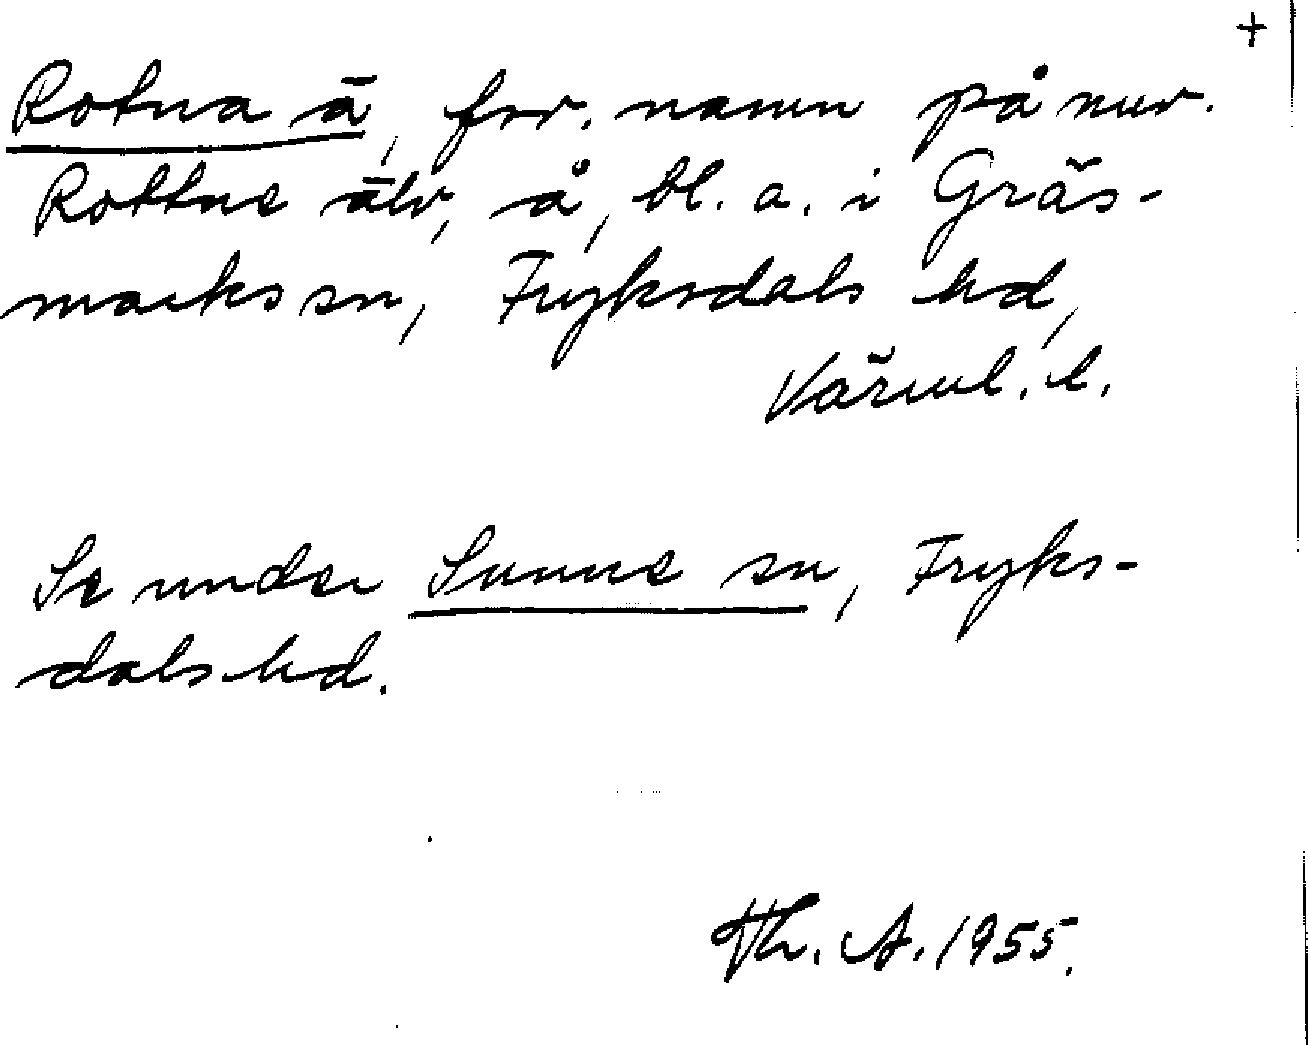 +
Rotna ā, förr. namn på nuv.
Rottne älv, å, bl. a. i Gräs-
marks sn, Fryksdals hd,
Värml. l.
Se under Sunne sn, Fryks-
dals hd.
Th. A. 1955.